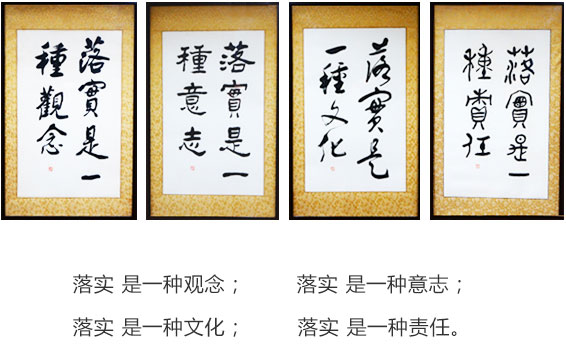 落實是一
種觀念
落實是一
種意志
落實是
一種文化
落實是一
種責任
落实 是一种观念； 落实 是一种意志；
落实 是一种文化； 落实 是一种责任。